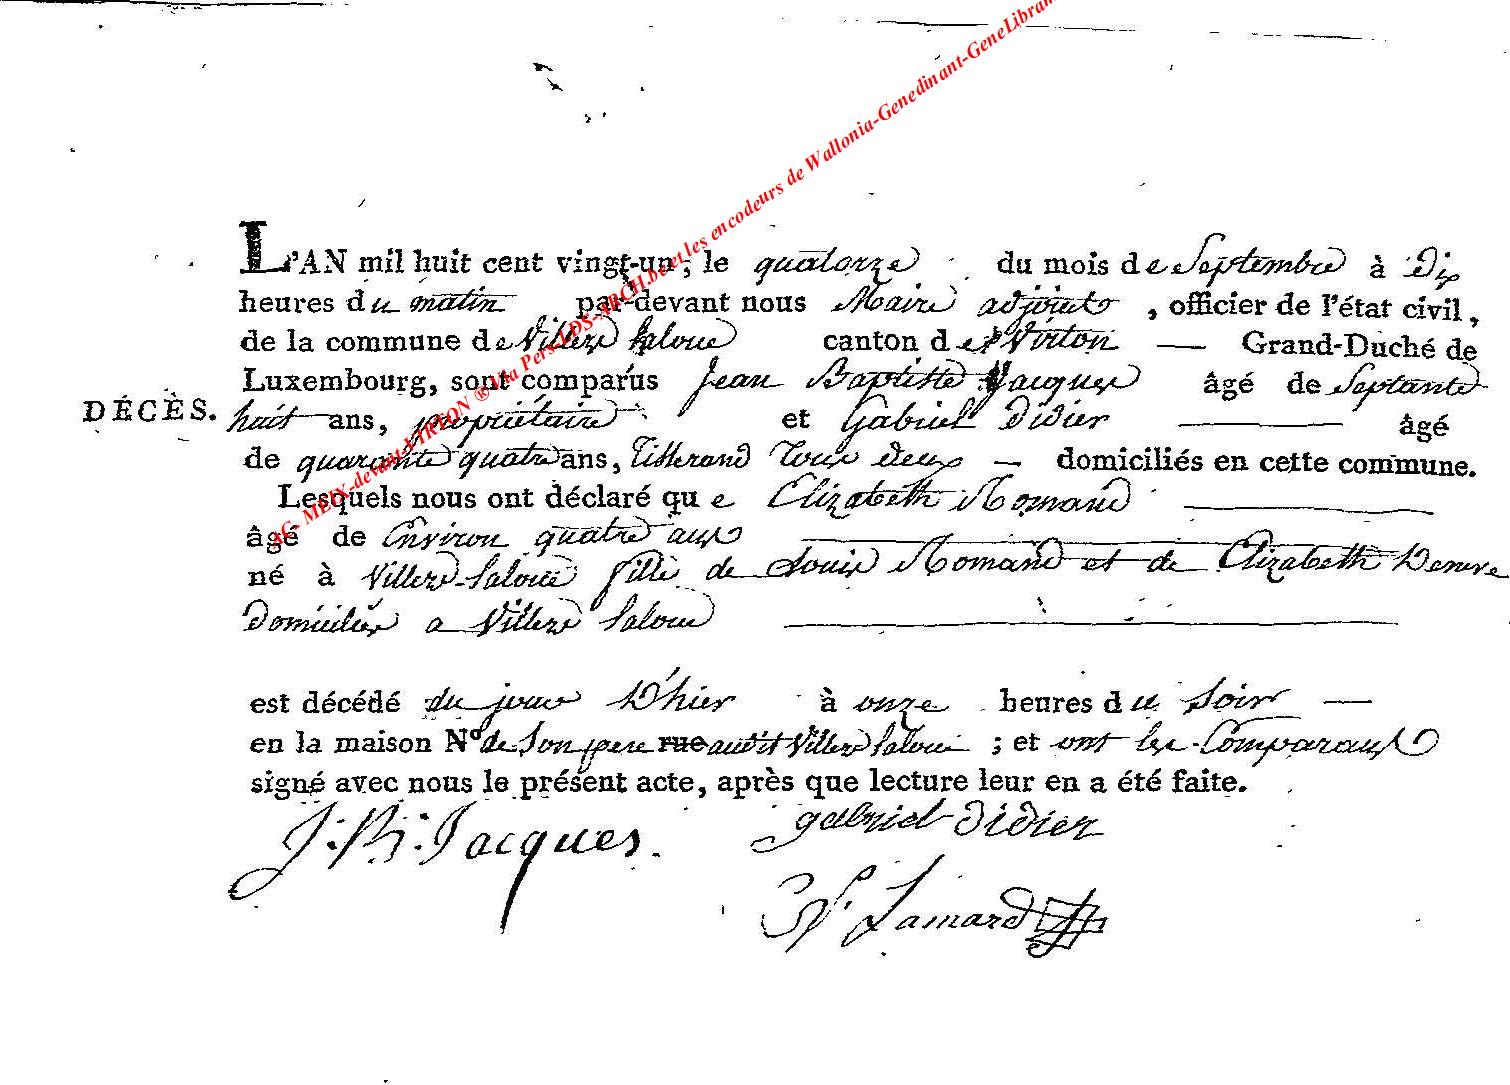 L'AN mil huit cent vingt-un, le quatorze du mois de Septembre à Dix
heures du matin par-devant nous Maire adjoint, officier de l'état civil,
de la commune de Villers laloue canton de Virton — Grand-Duché de
Luxembourg, sont comparus Jean Baptiste Jacques âgé de Septante
DÉCÈS.
huit ans, propriétaire et Gabriel Didier âgé
de quarante quatre ans, Tisserand Tous deux — domiciliés en cette commune.
Lesquels nous ont déclaré que Elizabeth Romand
âgé de Environ quatre ans
né à Villers-laloue fille de Louis Romand et de Elizabeth
Domiciliés a Villers laloue
est décédé du jour D'hier à onze heures du Soir —
en la maison N° de Son pere rue audit Villers laloue ; et ont les Comparans
signé avec nous le présent acte, après que lecture leur en a été faite.
J: B: Jacques.
gabriel didier
Lamard
AG- MEIX-devant-VIRTON ® Via Pers-LDS-ARCH.be et les encodeurs de Wallonia-Genedinant-GeneLibran